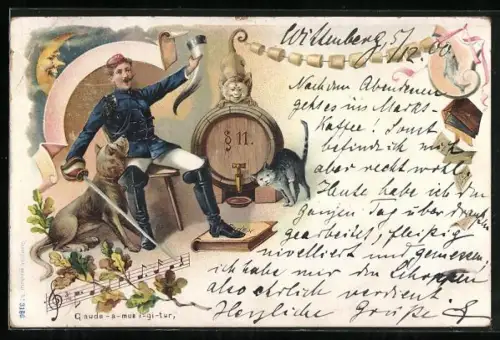 Wittenberg, 5/12.00
Nach dem Abendessen
geht es ins Markt-
Kaffee! Sonst
befinde ich mich
aber recht wohl
Heute habe ich den
ganzen Tag über draußen
gearbeitet, fleißig
nivelliert und gemessen,
ich habe mir den Schoppen
also ehrlich verdient.
Herzliche Grüße!
§ 11.
Gaude-a-mus i-gi-tur,
3186